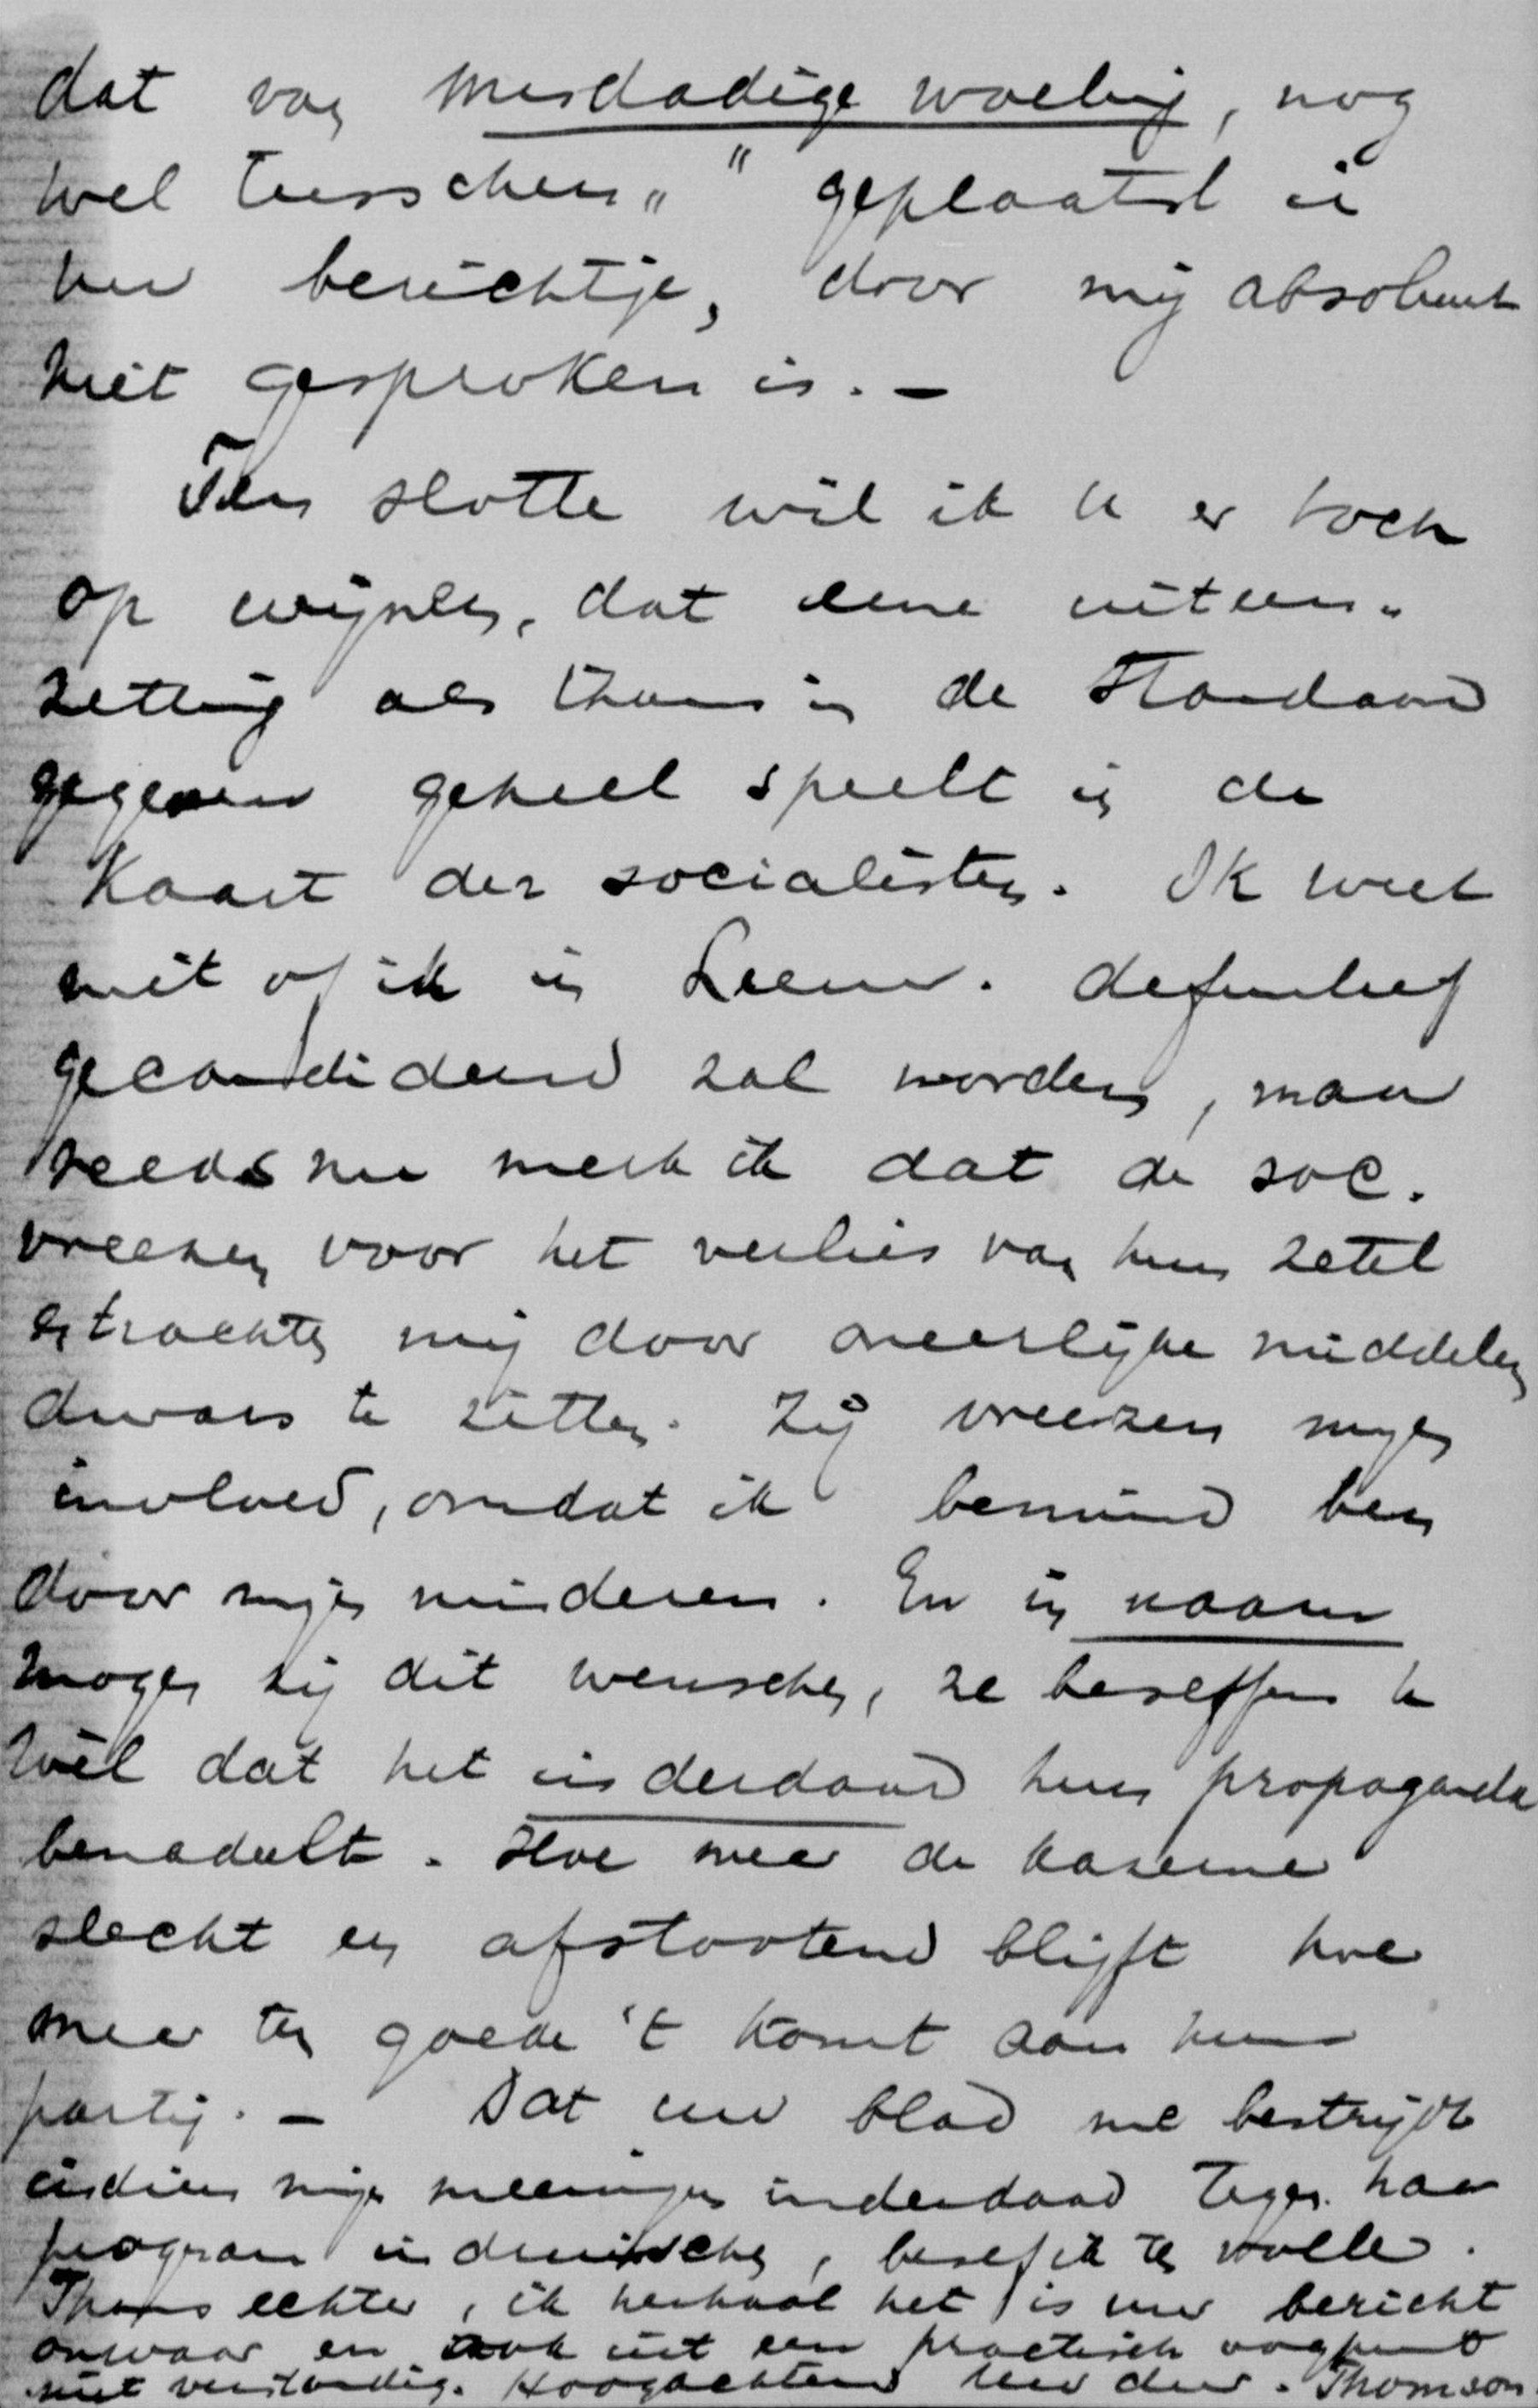 dat van misdadige woeling, nog
wel tusschen „ " geplaatst in
uw berichtje, door mij absoluut
niet gesproken is. –
Ten slotte wil ik U er toch
op wijzen, dat eene uiteen-
zetting als thans in de Standaard
gegeven geheel speelt in de
kaart der socialisten. Ik weet
niet of ik in Leeuw. definitief
gecandideerd zal worden, maar
reeds nu merk ik dat de soc.
vreezen voor het verlies van hun zetel
en trachten mij door oneerlijke middelen
dwars te zitten. Zij vreezen mijn
invloed, omdat ik bemind ben
door mijn minderen. En in naam
mogen zij dit wenschen, ze beseffen te
wèl dat het inderdaad hun propaganda
benadeelt. Hoe meer de kazerne
slecht en afstootend blijft hoe
meer ten goede 't komt aan hun
partij. – Dat uw blad me bestrijdt
indien mijn meeningen inderdaad tegen haar
program indruischen, besef ik ten volle.
Thans echter, ik herhaal het is uw bericht
onwaar en ook uit een practisch oogpunt
niet verstandig. Hoogachtend Uw dw. Thomson